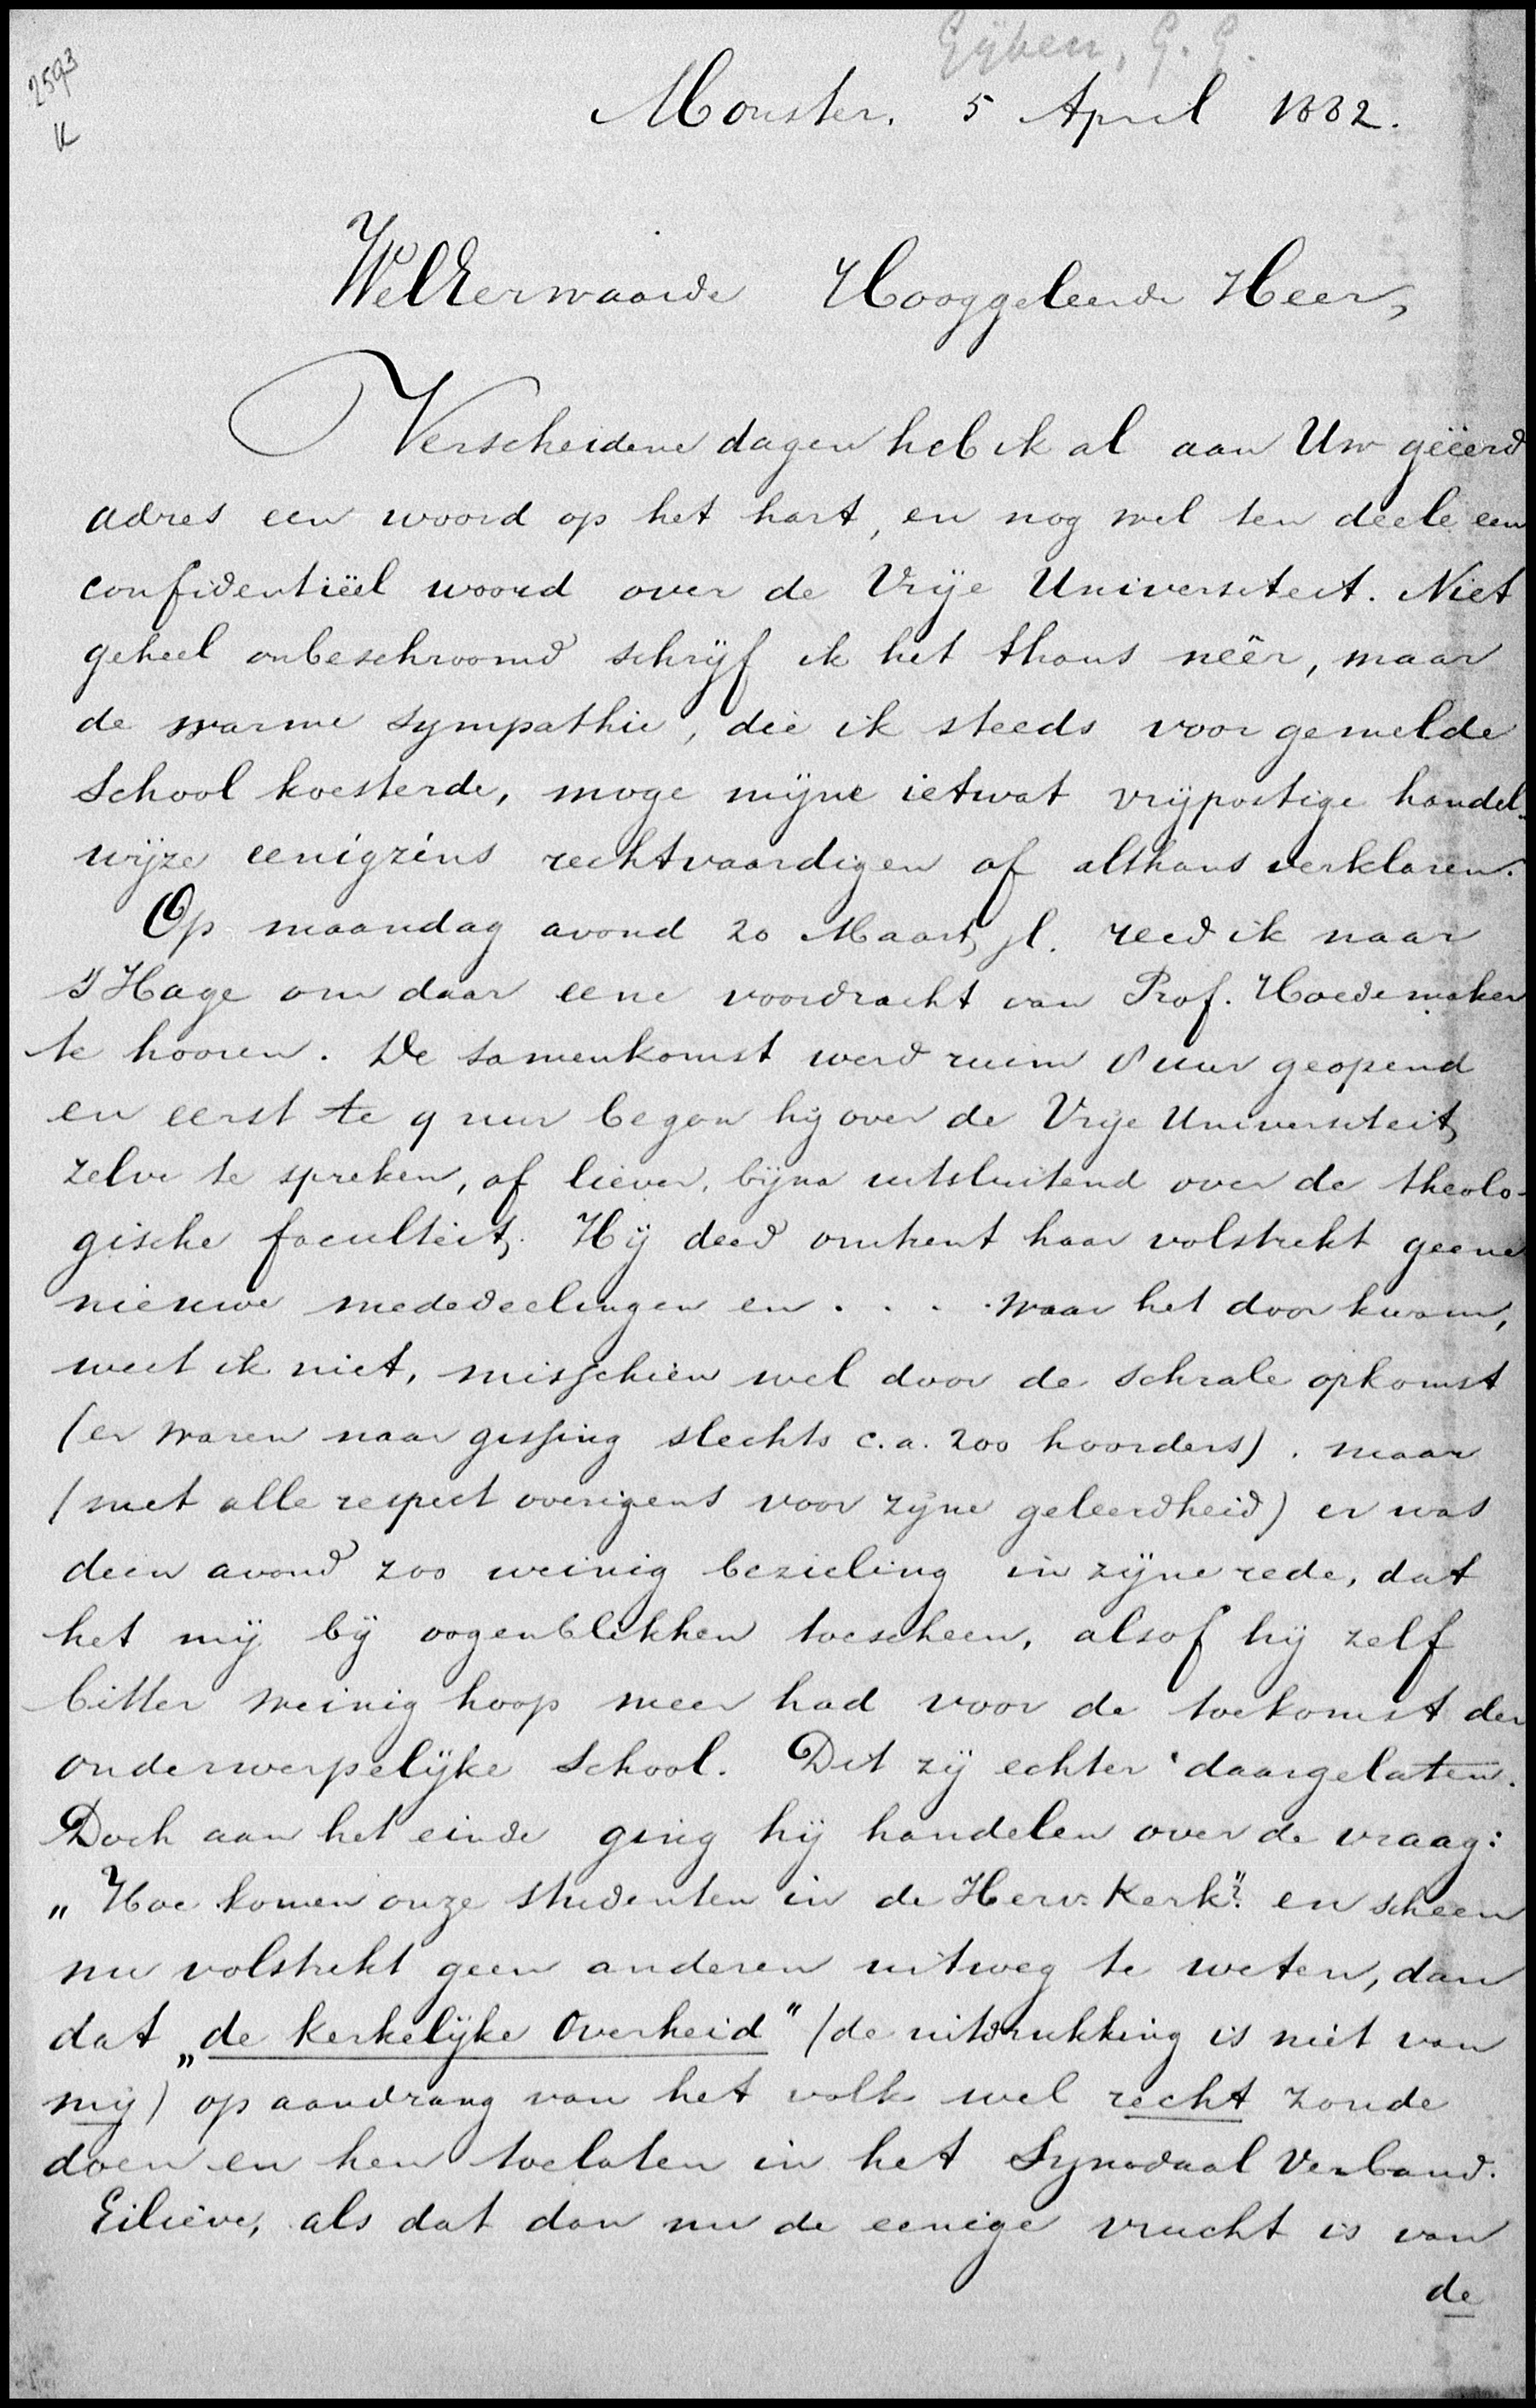 Gijben, G. G.
2593
K
Monster. 5 April 1882.
WelEerwaarde Hooggeleerde Heer,
Verscheidene dagen heb ik al aan Uw geëerd
adres een woord op het hart, en nog wel ten deele een
confidentiëel woord over de Vrije Universiteit. Niet
geheel onbeschroomd schrijf ik het thans neêr, maar
de warme sympathie, die ik steeds voor gemelde
School koesterde, moge mijne ietwat vrijpostige handel-
wijze eenigzins rechtvaardigen of althans verklaren.
Op maandag avond 20 Maart jl. reed ik naar
'sHage om daar eene voordracht van Prof. Hoedemaker
te hooren. De samenkomst werd ruim 8 uur geopend
en eerst te 9 uur began hij over de Vrije Universiteit
zelve te spreken, of liever, bijna uitsluitend over de theolo-
gische faculteit. Hij deed omtrent haar volstrekt geene
nieuwe mededeelingen en . . . . waar het door kwam,
weet ik niet, misschien wel door de schrale opkomst
(er waren naar gissing slechts c.a. 200 hoorders). maar
(met alle respect overigens voor zijne geleerdheid) er was
deen avond zoo weinig bezieling in zijne rede, dat
het mij bij oogenblikken toescheen, alsof hij zelf
bitter weinig hoop meer had voor de toekomst der
onderwerpelijke School. Dit zij echter daargelaten.
Doch aan het einde ging hij handelen over de vraag:
„Hoe komen onze studenten in de Herv. Kerk"? en scheen
nu volstrekt geen anderen uitweg te weten, dan
dat „de kerkelijke Overheid" (de uitdrukking is niet van
mij) op aandrang van het volk wel recht zoude
doen en hen toelaten in het Synodaal Verband.
Eilieve, als dat dan nu de eenige vrucht is van
de